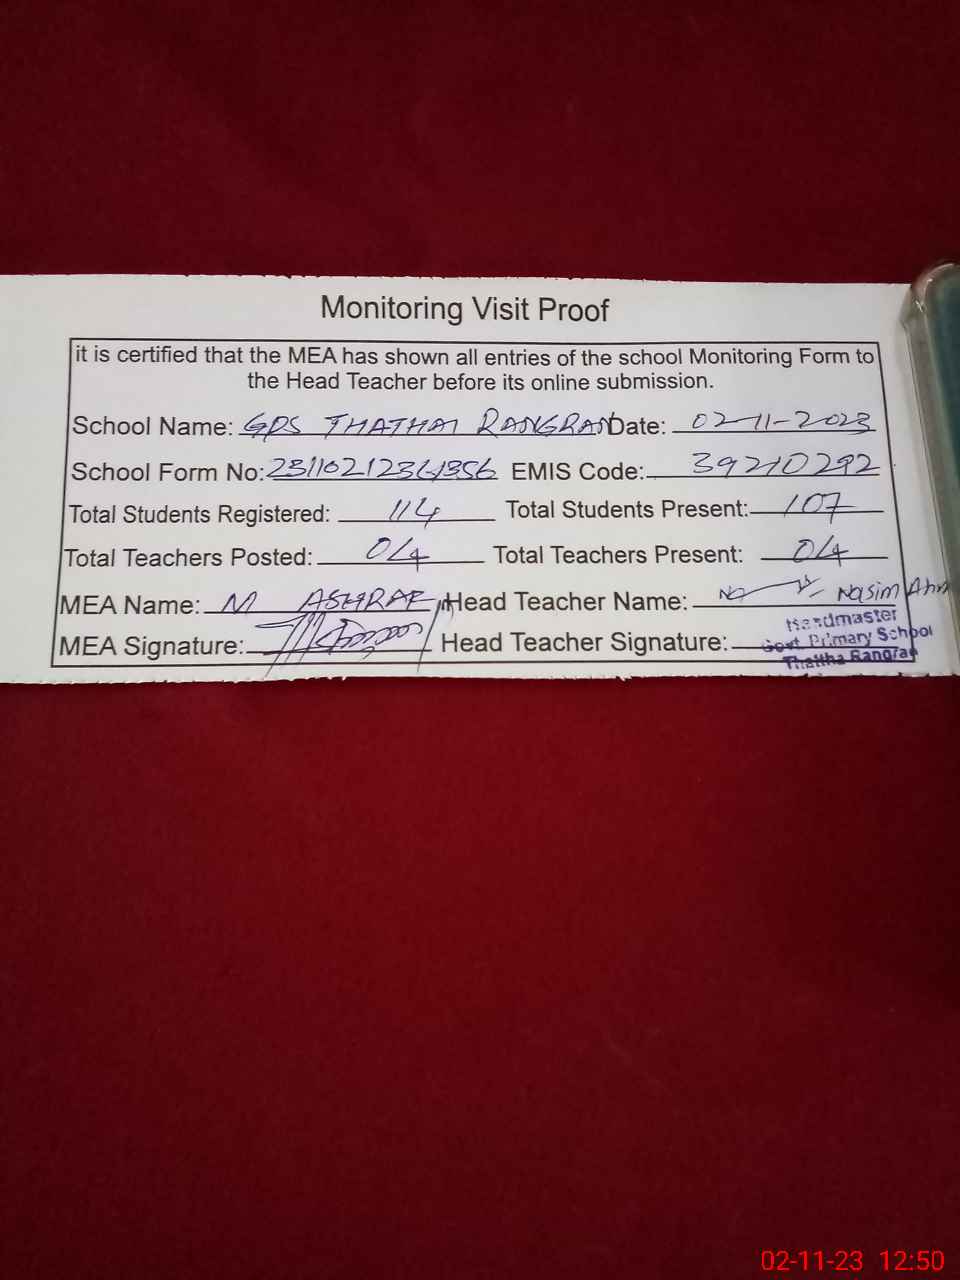 Monitoring Visit Proof
it is certified that the MEA has shown all entries of the school Monitoring Form to
the Head Teacher before its online submission.
School Name: GPS THATHAI RANGRAN Date: 02-11-2023
School Form No: EMIS Code: 39210292
Total Students Registered: 114 Total Students Present: 107
Total Teachers Posted: 04 Total Teachers Present: 04
MEA Name: M ASHRAF Head Teacher Name: Nasim Ahm
MEA Signature: Head Teacher Signature:
Headmaster
Govt. Primary School
Thattha Rangran
02-11-23 12:50